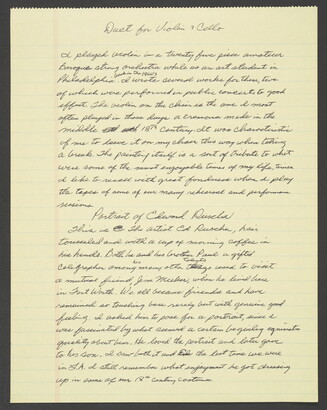 Duet for Violin & Cello
I played violin in a twenty five piece amateur
Baroque string orchestra while as an art student in
Philadelphia back in the 1960's. I wrote several works for them, two
of which were performed in public concerts to good
effect. The violin on the chair is the one I most
often played in those days a Cremona made in the
middle 18th Century. It was characteristic
of me to leave it on my chair this way when taking
a break. The painting itself is a sort of tribute to what
were some of the most enjoyable times of my life, times
I like to recall with great fondness when I play
the tapes of some of our many rehearsal and performance
sessions.
Portrait of Edward Ruscha
This is the artist Ed Ruscha, hair
tousseled and with a cup of morning coffee in
his hands. Both he and his brother Paul a gifted
among many other used to visit
a mutual friend, Jim Meeker, when he lived here
in Fort Worth. We all became friends and have
remained so touching base rarely but with genuine good
feeling. I asked him to pose for a portrait, since I
was fascinated by what seemed a certain
quality about him. He loved the portrait and later gave
to his son. I saw both it and the last time we were
in L.A. I still remember what enjoyment he got dressing
up in some of our 18th Century costume